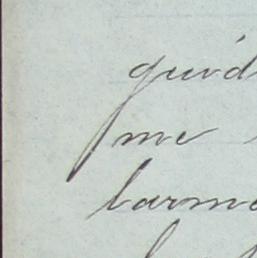 quid
me
larme